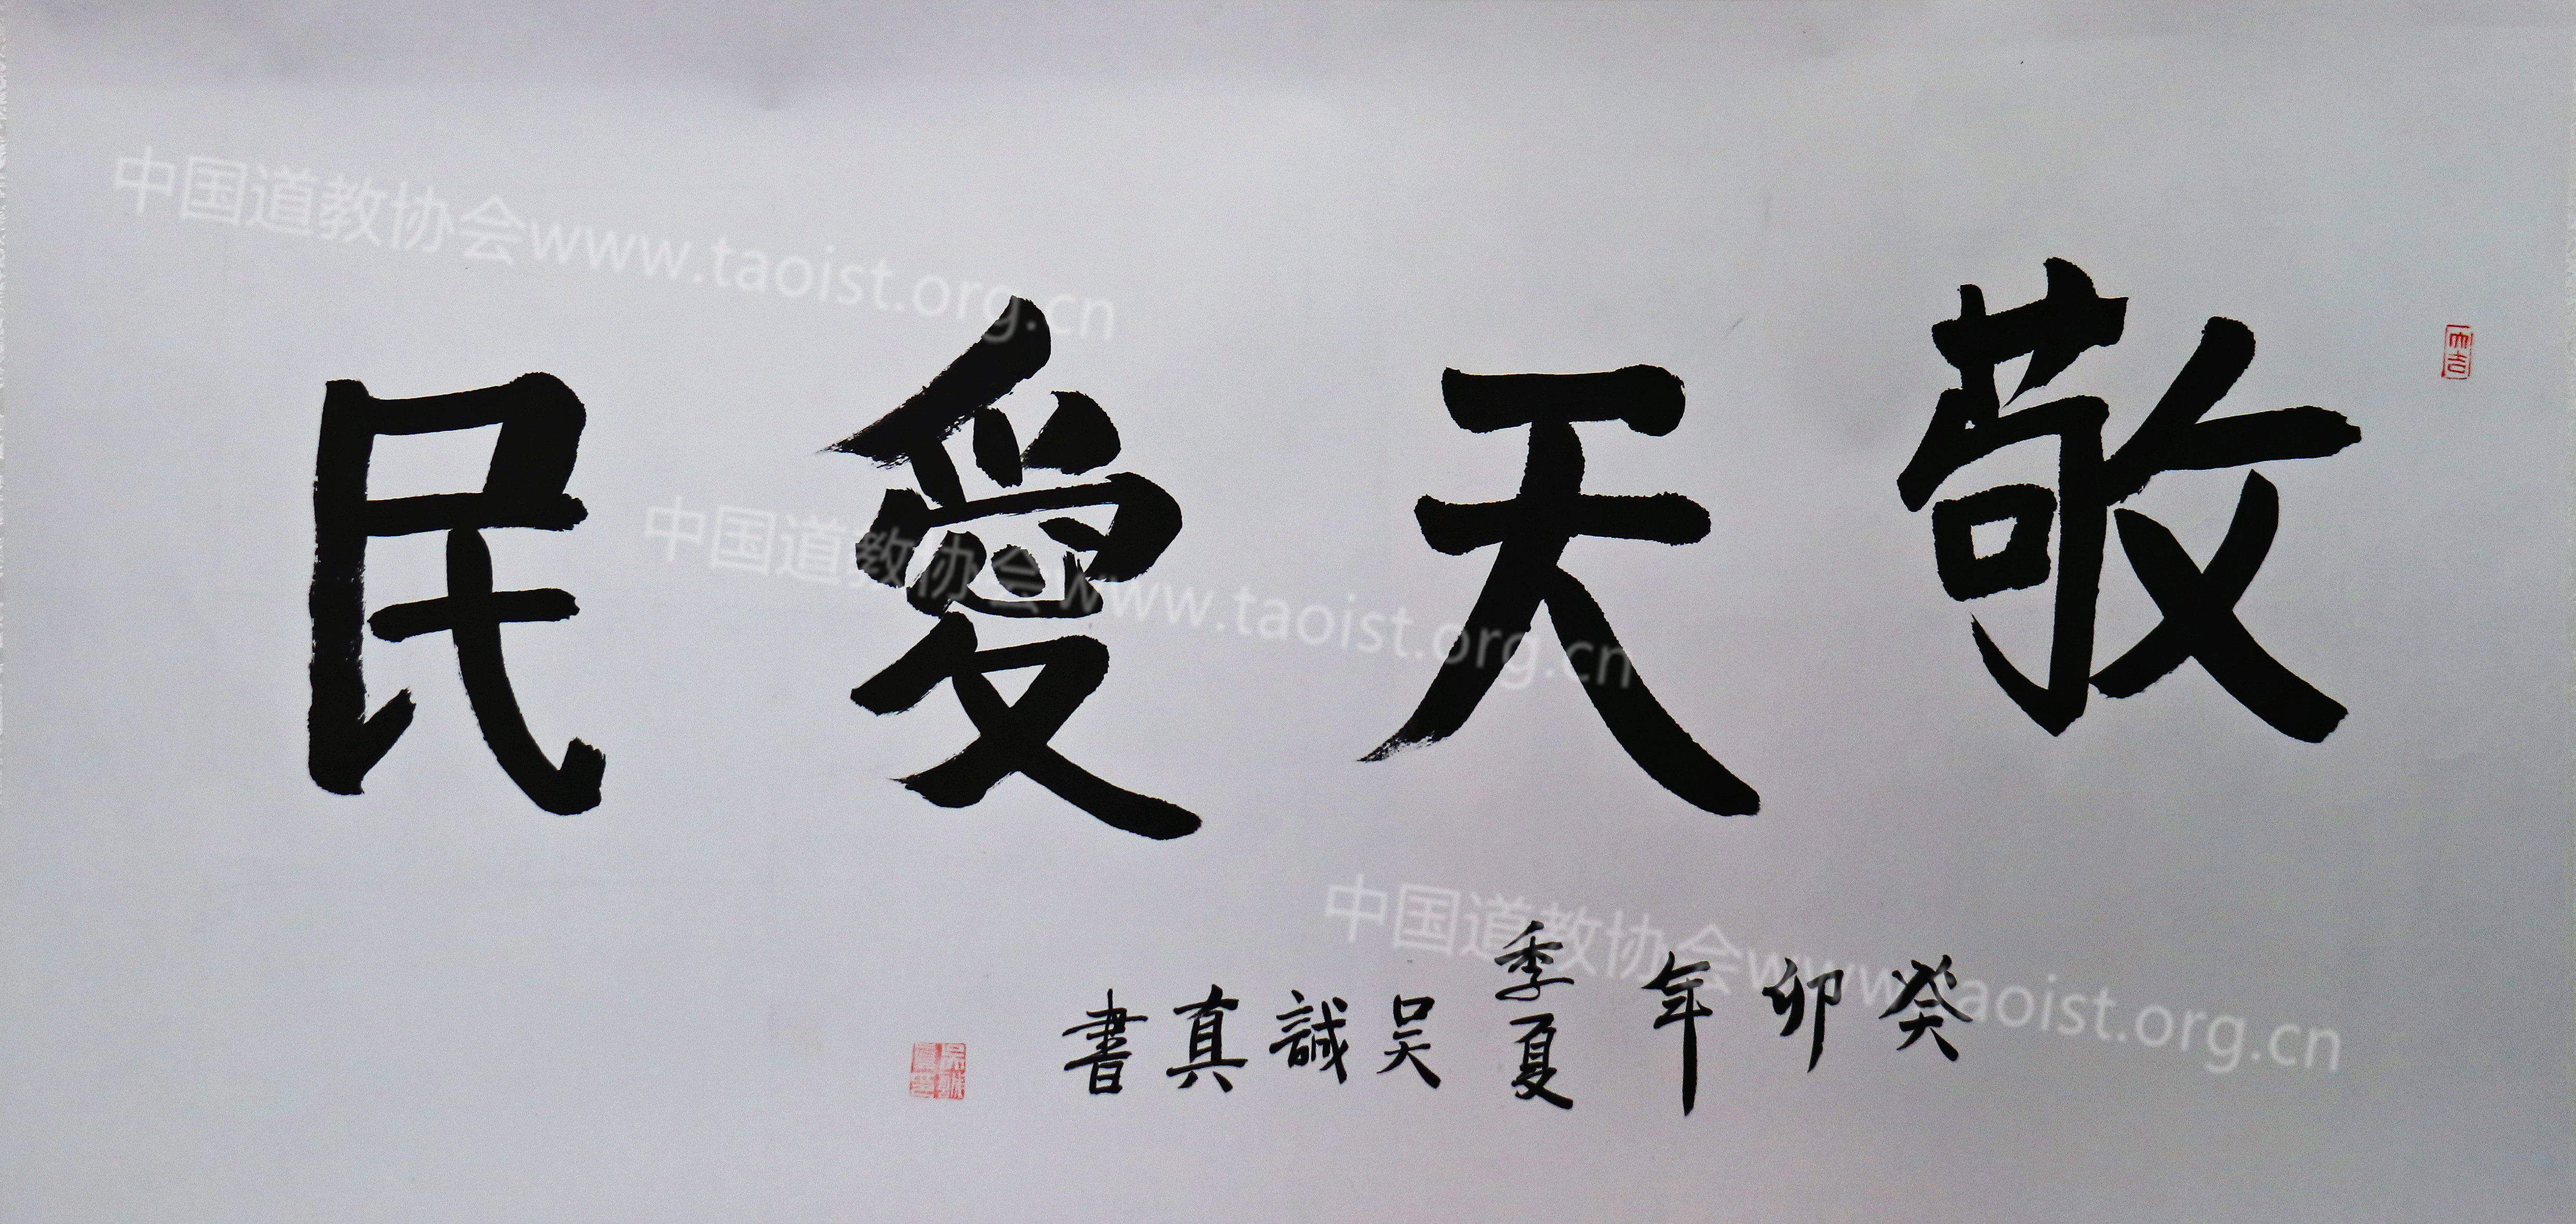 敬天愛民
癸卯年季夏吴誠真書
大吉
吴誠真印
中国道教协会www.taoist.org.cn
中国道教协会www.taoist.org.cn
中国道教协会www.taoist.org.cn